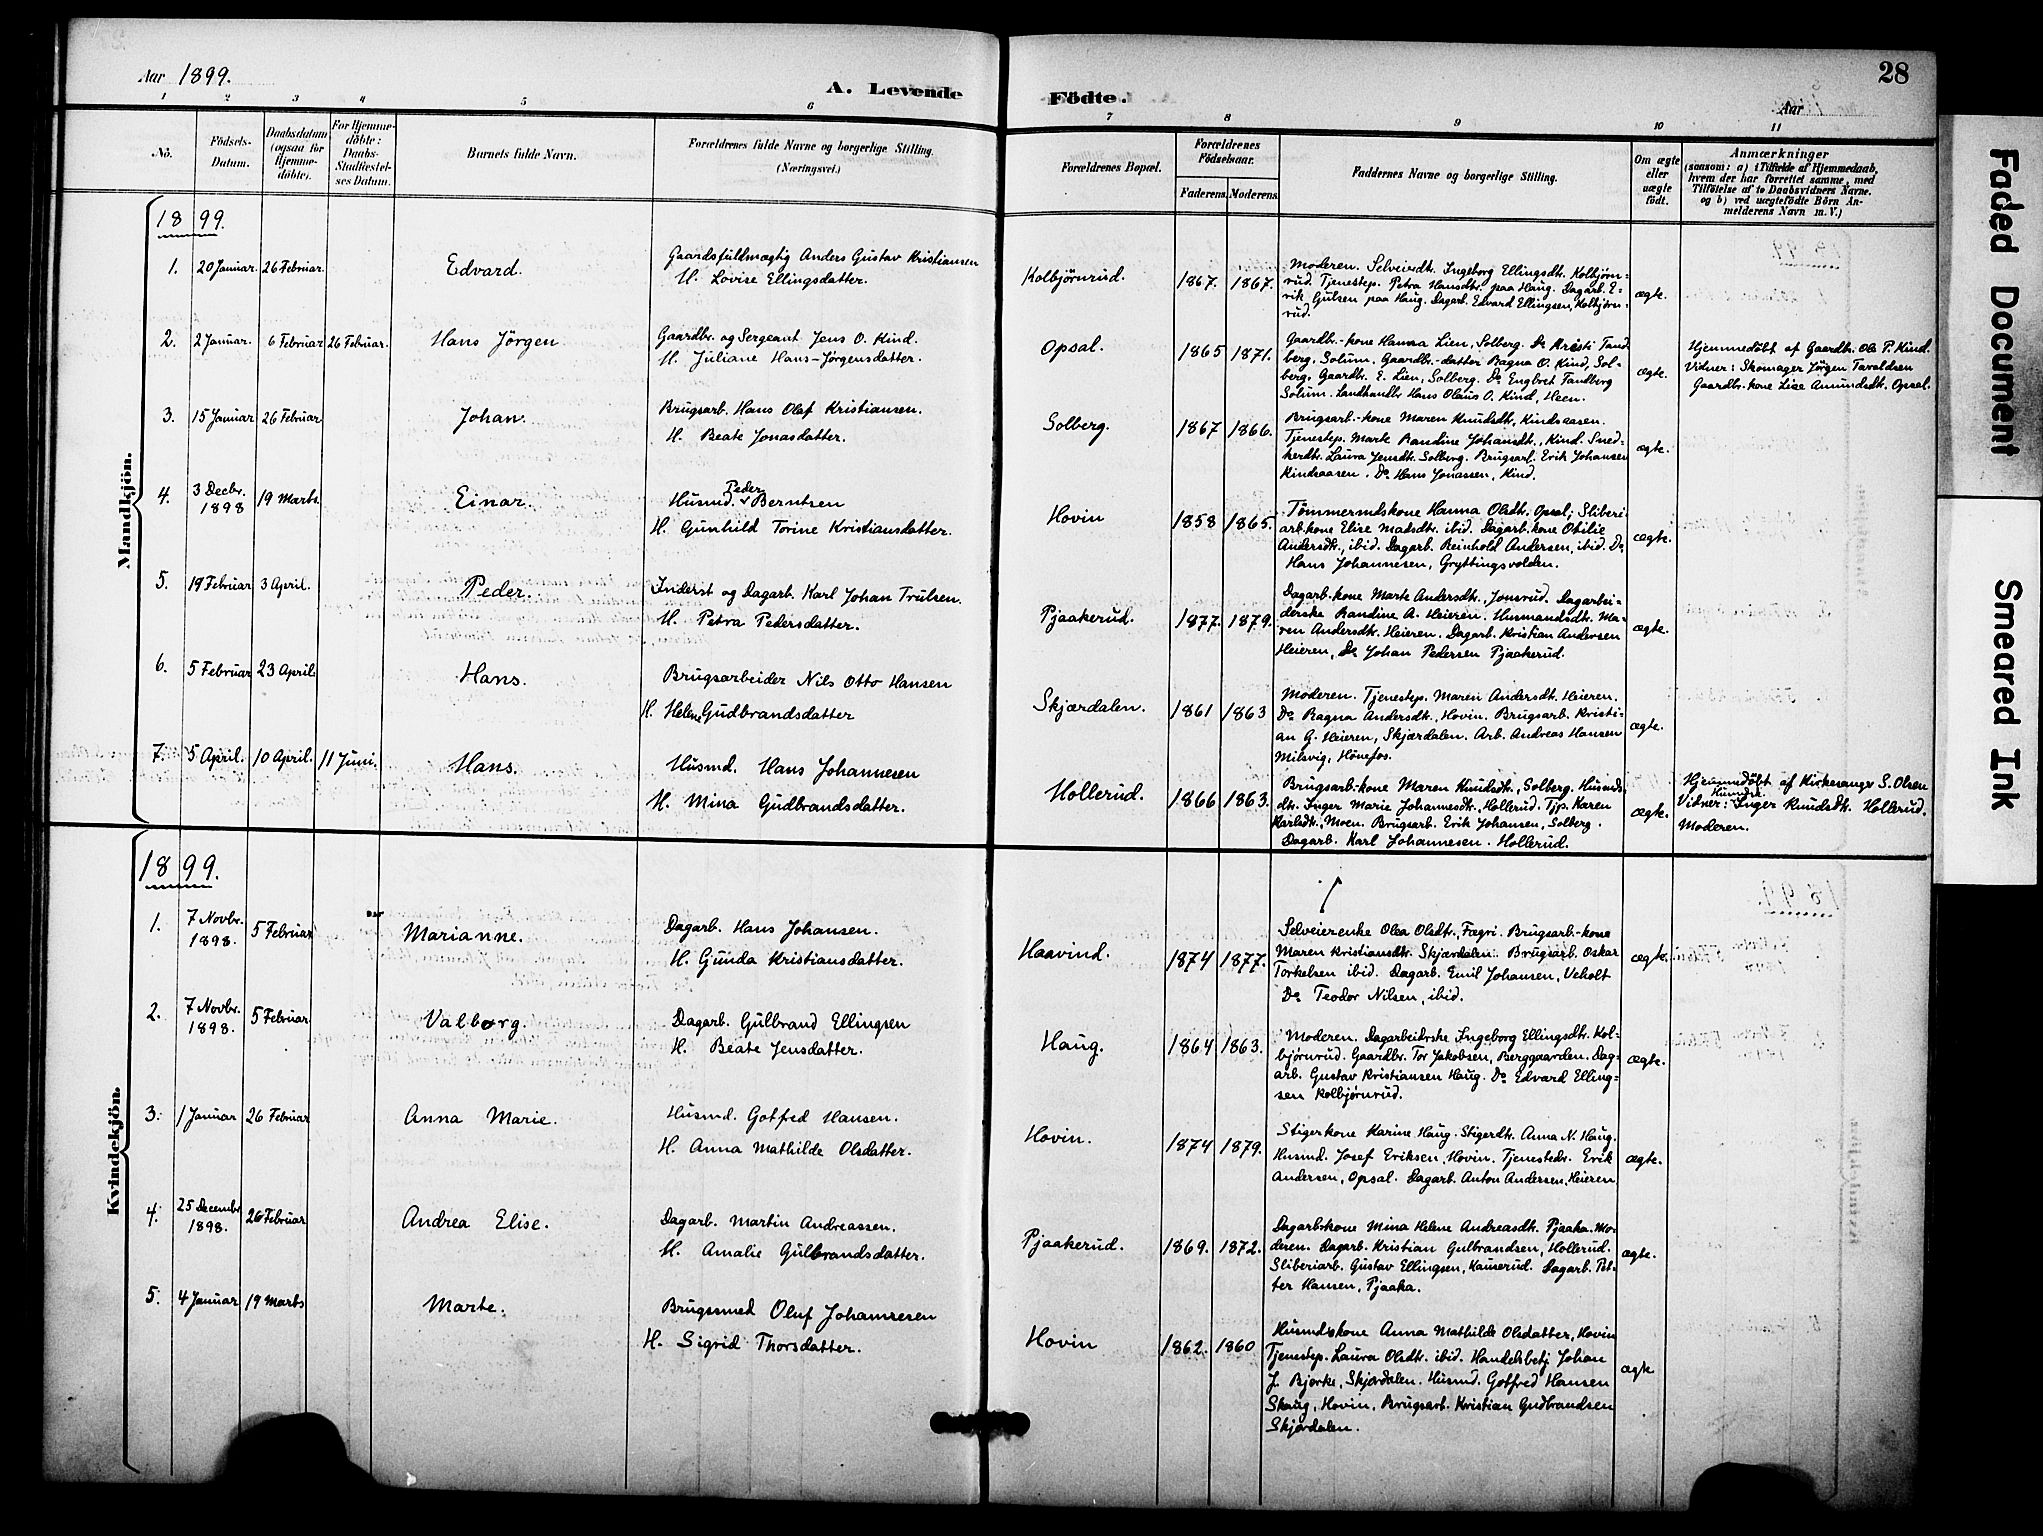 Aar 1899.
A. Levende Födte.
28
Aar
1 2 3 4 5 6 7 8 9 10 11
Nö.
Födsels-Datum.
Daabsdatum (ogsaa for Hjemme-döbte).
For Hjemme-döbte: Daabs-Stadfæstel-ses Datum.
Barnets fulde Navn.
Forældrenes fulde Navne og borgerlige Stilling. (Næringsvei.)
Forældrenes Bopæl.
Forældrenes Födselsaar.
Faderens. Moderens.
Faddernes Navne og borgerlige Stilling.
Om ægte eller uægte födt.
Anmærkninger
(saasom: a) i Tilfælde af Hjemmedaab,
hvem der har forrettet samme, med
Tilföielse af to Daabsvidners Navne.
og b) ved uægtefödte Börn An-
melderens Navn m. V.)
Mandkjön.
1899.
1. 20 Januar. 26 Februar. Edvard.
Gaardsfuldmægtig Anders Gustav Kristiansen
H. Lovise Ellingsdatter.
Kolbjørnrud. 1867. 1867.
Moderen. Selveierdtr. Ingeborg Ellingsdtr. Kolbjørn-
rud. Tjenestep. Petra Hansdtr. paa Haug. Dagarb. E-
rik Gulsen paa Haug. Dagarb. Edvard Ellingsen, Kolbjørn-
rud.
ægte.
2. 2 Januar. 6 Februar 26 Februar. Hans Jörgen
Gaardbr. og Sergeant Jens O. Kind.
H. Juliane Hans-Jørgensdatter.
Opsal. 1865 1871.
Gaardbr.-kone Hanna Lien, Solberg. Do Kristi Tand
berg. Solum. Gaardbr.-datter Ragna O. Kind, Sol-
berg. Gaardbr. E. Lien, Solberg. Do Engbret Tandberg
Solum. Landhandlr Hans Olaus O. Kind, Heen.
ægte.
Hjemmedöbt af Gaardbr. Ole P. Kind.
Vidner: Skomager Jørgen Taraldsen
Gaardbr.-kone Lise Amundsdtr. Opsal.
3. 15 Januar 26 Februar Johan.
Brugsarb. Hans Olaf Kristiansen.
H. Beate Jonasdatter.
Solberg. 1867 1866.
Brugsarb.-kone Maren Knudsdtr, Kindsaasen.
Tjenestep. Marte Randine Johansdtr., Kind. Sned-
kerdtr. Laura Jensdtr. Solberg. Brugsarb. Erik Johansen
Kindsaasen. Do Hans Jonassen, Kind.
ægte.
4. 3 Decbr. 1898 19 Marts. Einar.
Husmd. Peder Berntsen
H. Gunhild Torine Kristiansdatter.
Hovin 1858 1865.
Tömmermdskone Hanna Olsdtr. Opsal; Sliberi-
arb.kone Elise Madsdtr. ibid. Dagarb.kone Otilie
Andersdtr., ibid. Dagarb. Reinhold Andersen, ibid. Do
Hans Johannesen, Gryttingsvolden.
ægte.
5. 19 Februar 3 April. Peder.
Inderst og Dagarb. Karl Johan Trulsen.
H. Petra Pedersdatter.
Pjaakerud. 1877. 1879.
Dagarb.kone Marte Andersdtr., Jonsrud. Dagarbei-
derske Randine A. Heieren. Husmandsdtr. Ma-
ren Andersdtr. Heieren. Dagarb. Kristian Andersen
Heieren, Do Johan Pedersen Pjaakerud.
ægte.
6. 5 Februar 23 April. Hans.
Brugsarbeider Nils Otto Hansen
H. Helene Gudbrandsdatter
Skjærdalen. 1861 1863
Moderen. Tjenestep. Maren Andersdtr. Heieren.
Do Ragna Andersdtr., Hovin. Brugsarb. Kristi-
an G. Heieren, Skjærdalen. Arb. Andreas Hansen
Milsvig, Hönefos.
ægte.
7. 5 April. 10 April. 11 Juni. Hans.
Husmd. Hans Johannesen
H. Mina Gudbrandsdatter.
Hollerud. 1866 1863.
Brugsarb.kone Maren Knudsdtr, Solberg. Husmds-
dtr. Inger Marie Johannesdtr., Hollerud. Tjp. Karen
Karlsdtr., Moen. Brugsarb. Erik Johansen, Solberg.
Dagarb. Karl Johannesen. Hollerud.
ægte.
Hjemmedöbt af Kirkesanger S. Olsen
Vidner: Inger Knudsdtr. Hollerud.
Moderen.
Kvindekjön.
1899.
1. 7 Novbr. 1898. 5 Februar Marianne.
Dagarb. Hans Johansen.
H. Gunda Kristiansdatter.
Haavind. 1874 1877.
Selveierenke Olea Olsdtr., Fægri. Brugsarb.-kone
Maren Kristiansdtr. Skjærdalen. Brugsarb. Oskar
Torkelsen ibid. Dagarb. Emil Johansen, Veholt
Do Teodor Nilsen, ibid.
ægte.
2. 7 Novbr. 1898. 5 Februar Valborg.
Dagarb. Gulbrand Ellingsen
H. Beate Jensdatter.
Haug. 1864 1863.
Moderen. Dagarbeidrske Ingeborg Ellingsdtr. Kol-
bjørnrud. Gaardbr. Tor Jakobsen, Berggaarden. Dag-
arb. Gustav Kristiansen Haug. Do Edvard Elling-
sen Kolbjørnrud.
ægte.
3. 1 Januar 26 Februar Anna Marie.
Husmd. Gotfred Hansen.
H. Anna Mathilde Olsdatter.
Hovin. 1874 1879.
Stigerkone Karine Haug. Stigerdtr. Anna N. Haug.
Husmd. Josef Eriksen, Hovin. Tjenestedr. Erik
Andersen, Opsal. Dagarb. Anton Andersen, Heieren
ægte.
4. 25 Decembr 1898. 26 Februar Andrea Elise.
Dagarb. Martin Andreassen.
H. Amalie Gulbrandsdatter.
Pjaakerud. 1869. 1872.
Dagarbkone Mina Helene Andreasdtr. Pjaaka. Mo-
deren. Dagarb. Kristian Gulbrandsen, Hollerud.
Sliberiarb. Gustav Ellingsen, Kauserud. Dagarb. Pet-
ter Hansen, Pjaaka.
ægte.
5. 4 Januar 19 Marts Marte.
Brugssmed Oluf Johannesen
H. Sigrid Thorsdatter.
Hovin 1862. 1860
Husmdskone Anna Mathilde Olsdatter, Hovin
Tjenestep. Laura Olsdtr. ibid. Handelsbetj. Johan
J. Bjørke, Skjærdalen. Husmd. Gotfred Hansen
Skaug, Hovin. Brugsarb. Kristian Gudbrandsen
Skjærdalen.
ægte
Faded Document
Smeared Ink